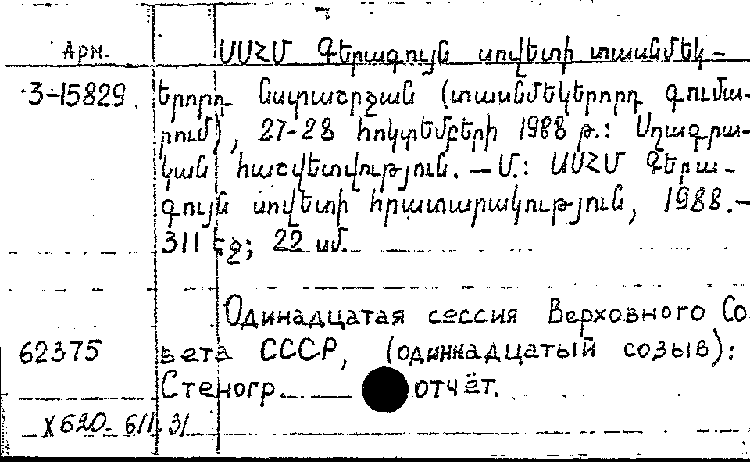 Арм.
ՍՍՀՄ Գերագույն սովետի տասնմեկ-
3-15829 երորդ նստաշրջան (տասնմեկերորդ գումա-
րում), 27-28 հոկտեմբերի 1988 թ.: Սղագրա-
կան հաշվետվություն. – Մ.: ՍՍՀՄ Գերա-
գույն սովետի հրատարակություն, 1988.–
311 էջ; 22 սմ.
Одинадцатая сессия Верховного Со
62375 вета СССР, (одиннадцатый созыв):
Стеногр. отчёт.
X620-611.31